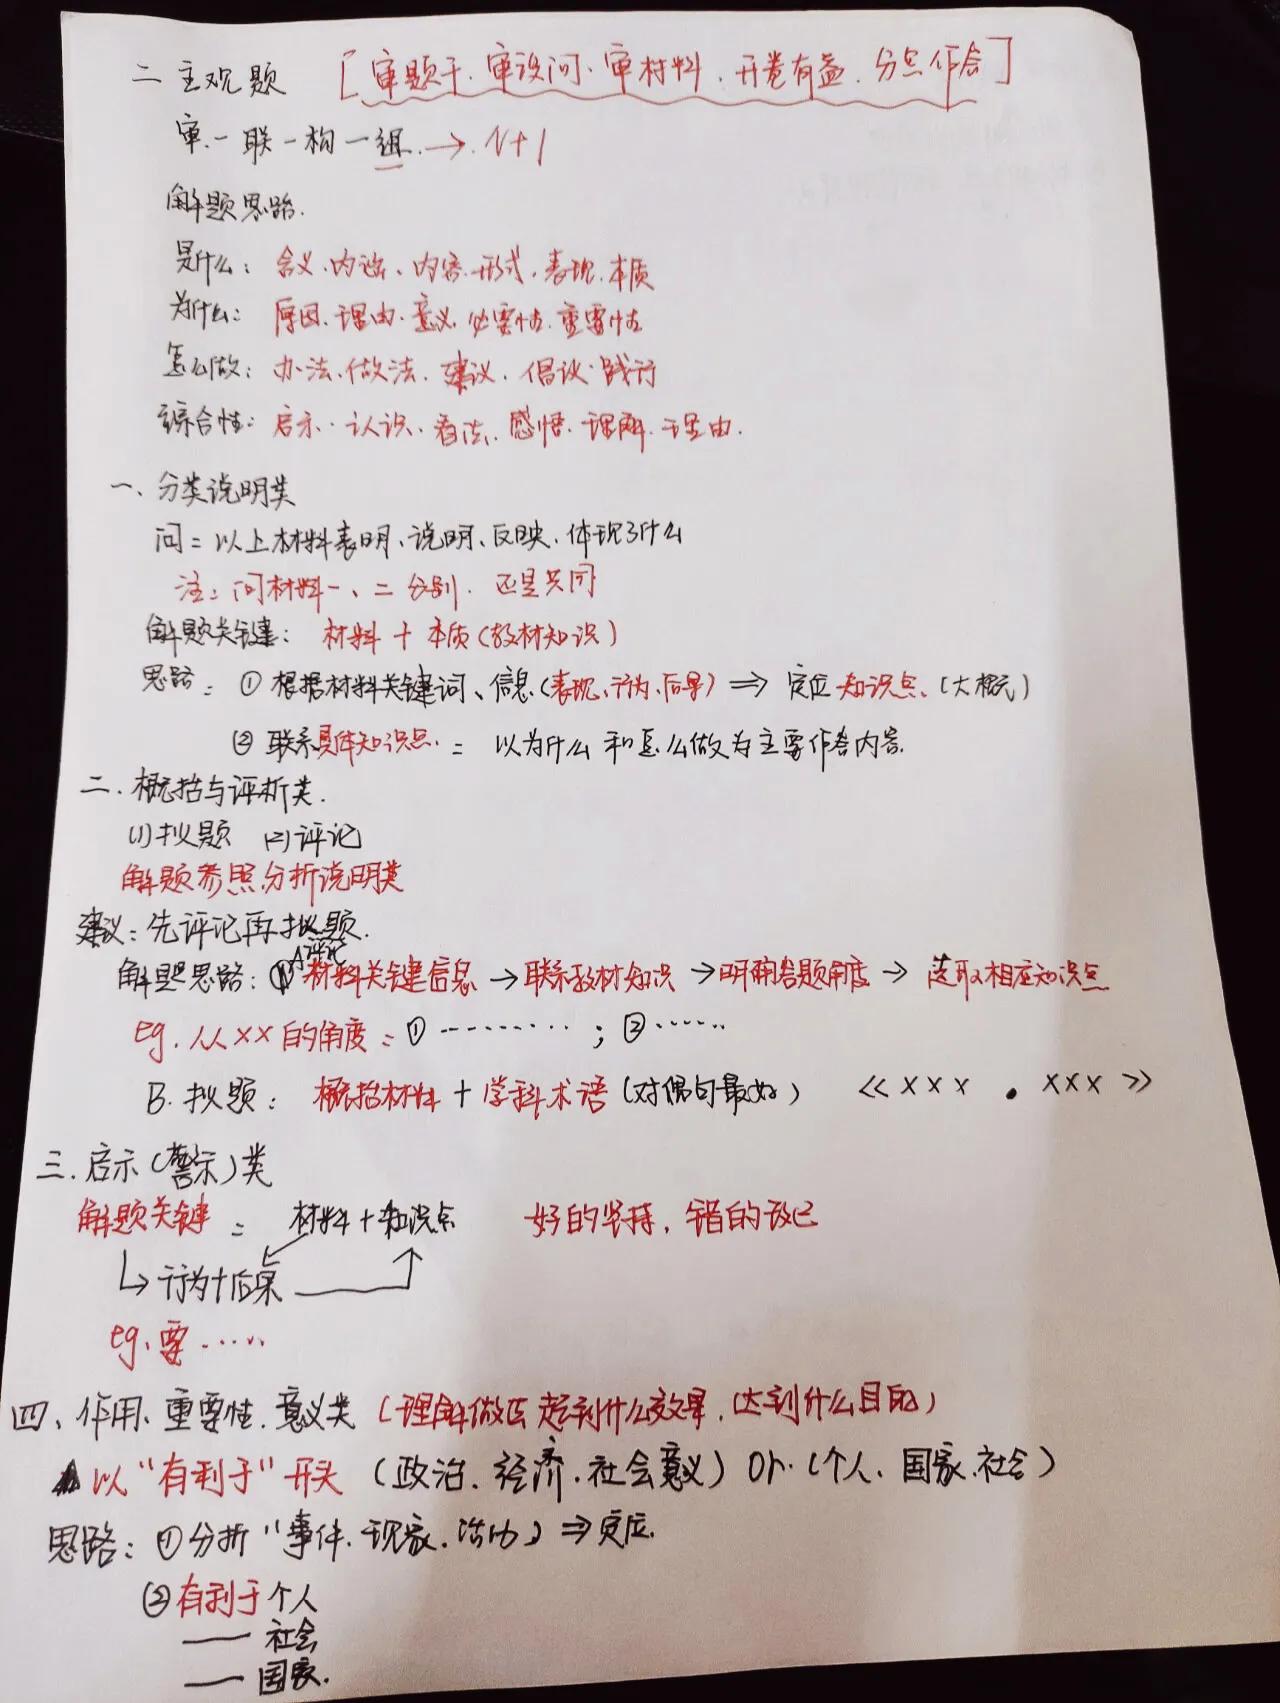 二 主观题 [审题干、审设问、审材料、开卷有益、分点作答]
审一联一构一组 → N+1
解题思路.
是什么：含义、内涵、内容、形式、表现、本质
为什么：原因、理由、意义、必要性、重要性
怎么做：办法、做法、建议、倡议、践行
综合性：启示、认识、看法、感悟、理解、理由.
一、分类说明类
问：以上材料表明、说明、反映、体现了什么
注：问材料一、二分别、还是共同
解题关键：材料+本质(教材知识)
思路：① 根据材料关键词、信息(表现、行为、后果) ⇒ 定位知识点、(大概念)
② 联系具体知识点：以为什么和怎么做为主要作答内容.
二、概括与评析类.
(1)拟题 (2)评论
解题参照分析说明类
建议：先评论再拟题.
A评论
解题思路：① 材料关键信息→联系教材知识→明确答题角度→选取相应知识点
eg.从××的角度：①·········；②······
B.拟题：概括材料+学科术语(对偶句最好) 《×××·×××》
三、启示(警示)类
解题关键：材料+知识点 好的坚持，错的改已
↳行为+后果
eg、要·····
四、作用、重要性、意义类 (理解做法起到什么效果，达到什么目的)
以"有利于"开头 (政治、经济、社会意义) or (个人、国家、社会)
思路：①分析"事件、现象、活动" ⇒定位.
②有利于个人
—— 社会
—— 国家.